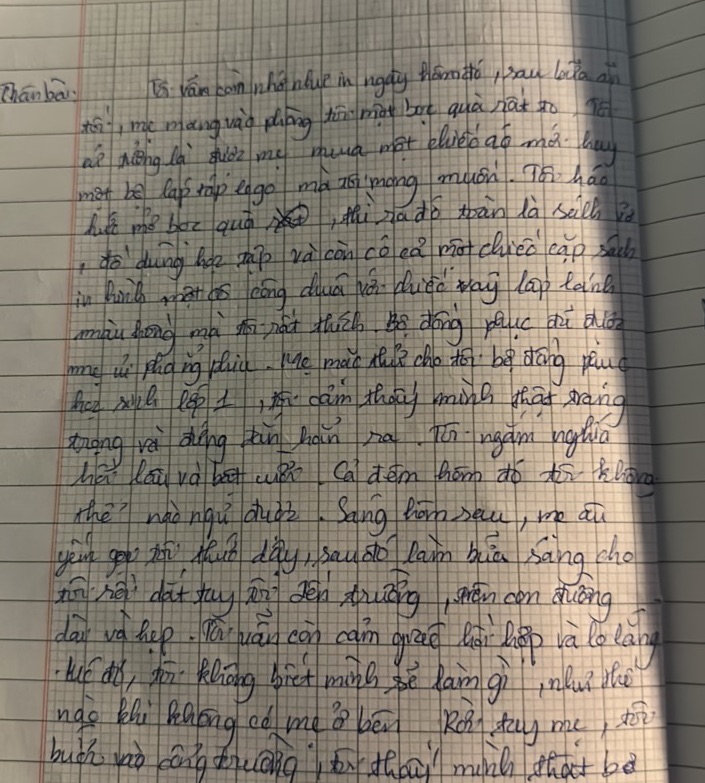 Thân bài: Tôi vẫn còn nhớ như in ngày hôm đó, sau bữa ăn
tối, mẹ mang vào phòng tôi một bọc quà rất to, Tôi
cứ tưởng là được mẹ mua một chiếc áo mới hay
một bộ lắp ráp lego mà tôi mong muốn. Tôi háo
hức mở bọc quà, thì ra đó toàn là sách vở
, đồ dùng học tập và còn có cả một chiếc cặp sách
in hình một cô công chúa với chiếc váy lấp lánh
màu hồng mà tôi rất thích. Bộ đồng phục đã được
mẹ ủi phẳng phiu. Mẹ mặc thử cho tôi bộ đồng phục
học sinh lớp 1, tôi cảm thấy mình thật trang
trọng và đứng đắn hẳn ra. Tôi ngắm nghía
hồi lâu và Cả đêm hôm đó tôi không
thể nào ngủ được. Sáng hôm sau, mẹ âu
yếm gọi tôi thức dậy, sau đó làm bữa sáng cho
tôi rồi dắt tay tôi đến trường, trên con đường
dài và hẹp. Tôi vẫn còn cảm giác hồi hộp và lo lắng
. lúc đó, tôi không biết mình sẽ làm gì, như thế
nào khi không có mẹ ở bên Rời tay mẹ, tôi
bước vào cổng trường, tôi thấy mình thật bé